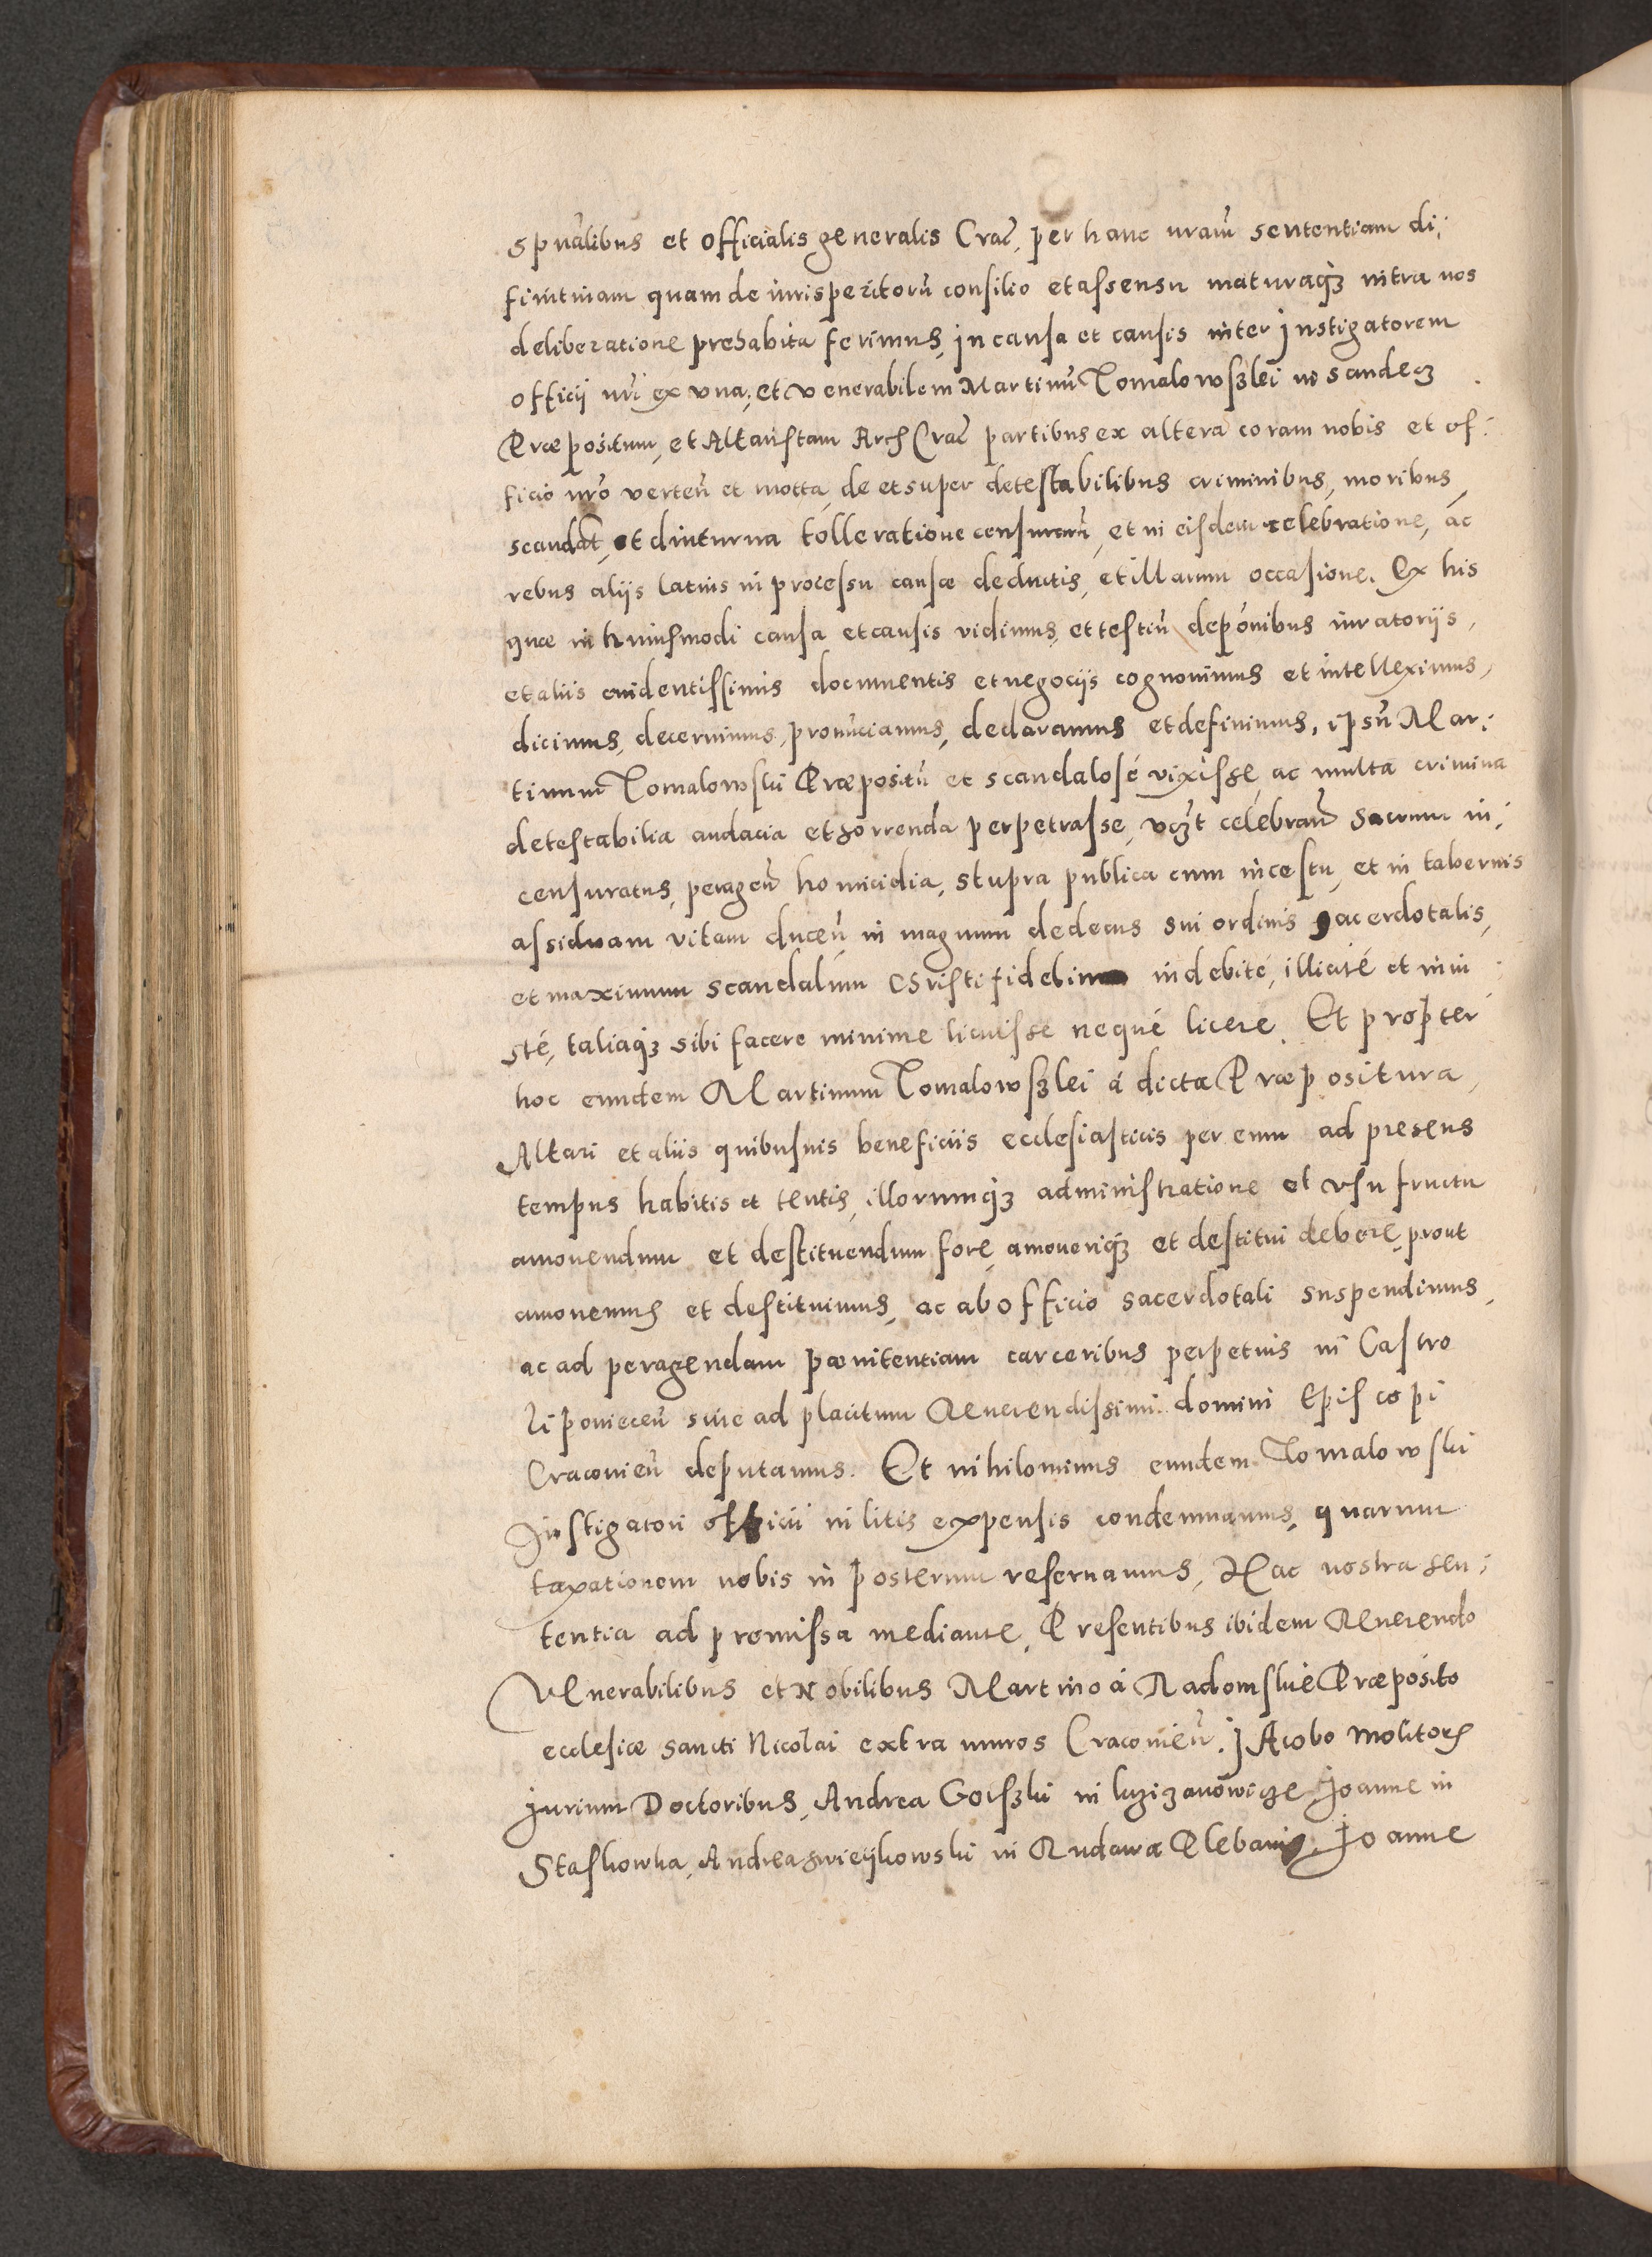 spũalibus et officialis generalis Crac̃, per hanc nram̃ sententiam di:
finitiuam quam de iurisperitorũ consilio et assensu maturaqꝫ intra nos
deliberatione prehabita ferimus, in causa et causis inter Instigatorem
officij nri ex vna, et venerabilem Martinũ Tomalowsklei in Sandecz
Præpositum, et Altaristam Arch Crac̃ partibus ex altera coram nobis et of:
ficio nro verteñ et motta, de et super detestabilibus criminibus, moribus,
scandal̃, et diuturna tolleratione censurarũ, et in eisdem celebratione, ac
rebus aliis latius in processu causæ deductis, et illarum occasione. Ex his
quæ in huiusmodi causa et causis vidimus, et testiũ deponibus iuratorijs,
et aliis euidentissimis documentis et negocijs cognouimus et intelleximus,
dicimus, decernimus, pronũciamus, declaramus et definimus, ipsũ Mar:
tinum Tomalowski Præpositũ et scandalosé vixisse, ac multa crimina
detestabilia audacia et horrenda perpetrasse, vcꝫt celebrañ Sacrum in:
censuratus, perageñ homicidia, stupra publica cum incestu, et in tabernis
assiduam vitam duceñ in magnum dedecus sui ordinis sacerdotalis,
et maximum scandalum Christifidelium indebité, illicité et iniu:
sté, taliaqꝫ sibi facere minime licuisse nequé licere. Et propter
hoc eundem Martinum Tomalowsklei á dicta Præpositura,
Altari et aliis quibusuis beneficiis ecclesiasticis per eum ad presens
tempus habitis et tentis, illorumqꝫ administratione et vsufructu
amouendum et destituendum fore, amoueriqꝫ et destitui debere, prout
amouemus et destituimus, ac ab officio sacerdotali suspendimus,
ac ad peragendam pœnitentiam carceribus perpetuis in Castro
Lipouieceñ siue ad placitum Reuerendissimi domini Episcopi
Cracouieñ deputamus. Et nihilominus eundem Tomalowski
Instigatori officii in litis expensis condemnamus, quarum
taxationem nobis in posterum reseruamus, Hac nostra sen:
tentia ad promissa mediante, Presentibus ibidem Reuerendo
Venerabilibus et Nobilibus Martino á Radomskie Præposito
ecclesiæ sancti Nicolai extra muros Cracouieñ. Jacobo Molitoris
Jurium Doctoribus, Andrea Gorski in Joanne in
Staskowka, Andrea in Rudawa Plebanis, Joanne